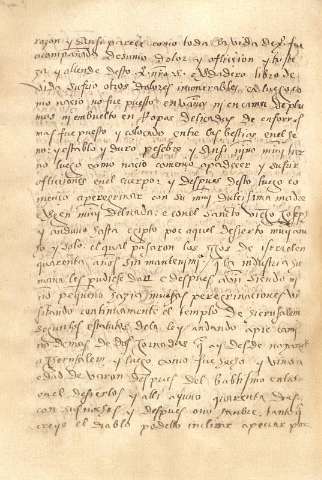 razon y ansi parece como toda la vida de xpo fue
acompañada de sumo dolor y aflicion y triste
za y aliende desto
vida sufrio otros dolores inumerables
mo nacio no fue puesto en vaño ni en cama de plu
mas ni embuelto en Ropas delicadas de enforros
mas fue puesto y colocado entre las bestias en el se
no y establo y duro pesebre y ansi niño muy tier
no luego como nacio començo a padecer y sufrir
afliciones en el cuerpo y despues desto luego co
menço a peregrinar con su muy dulcissima madre
virgen muy delicada e con el sancto viejo Josep
y anduvo hasta egipto por aquel desierto muy am
y solo el qual pasaron los hijos de isrrael en
quarenta años sin mantenimiº y la industria hu
mana les pudiese dar e despues aun siendo ni
ño pequeño hazia muchas peregrinaciones vi
sitando continuamente el templo de Jerusalem
segun los estatutos de la ley andando a pie cami
no de mas de dos Jornadas que ay desde nazaret
a Jerusalem y luego como fue
edad de varon despues del babtismo
en el desierto y alli ayuno quarenta dias
con sus noches y despues ovo hambre tanto que
creyo el diablo podello inclinar a pecar por